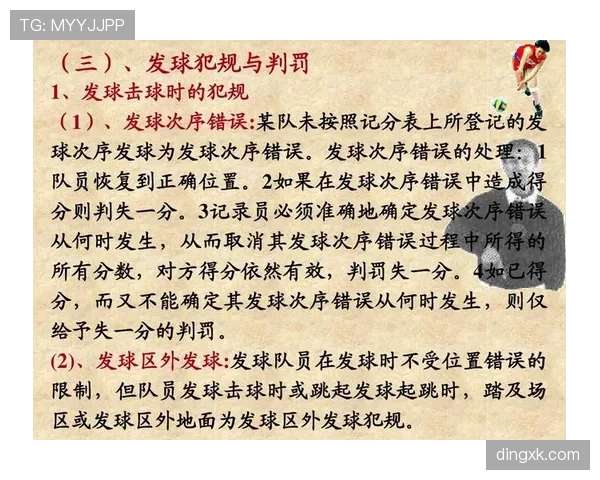 TG: MYYJJPP
（三）、发球犯规与判罚
1、发球击球时的犯规
（1）、发球次序错误:某队未按照记分表上所登记的发
球次序发球为发球次序错误。发球次序错误的处理：1
队员恢复到正确位置。2如果在发球次序错误中造成得
分则判失一分。3记录员必须准确地确定发球次序错误
从何时发生，从而取消其发球次序错误过程中所得的
所有分数，对方得分依然有效，判罚失一分。4如已得
分，而又不能确定其发球次序错误从何时发生，则仅
给予失一分的判罚。
(2)、发球区外发球:发球队员在发球时不受位置错误的
限制，但队员发球击球时或跳起发球起跳时，踏及场
区或发球区外地面为发球区外发球犯规。
dingxk.com